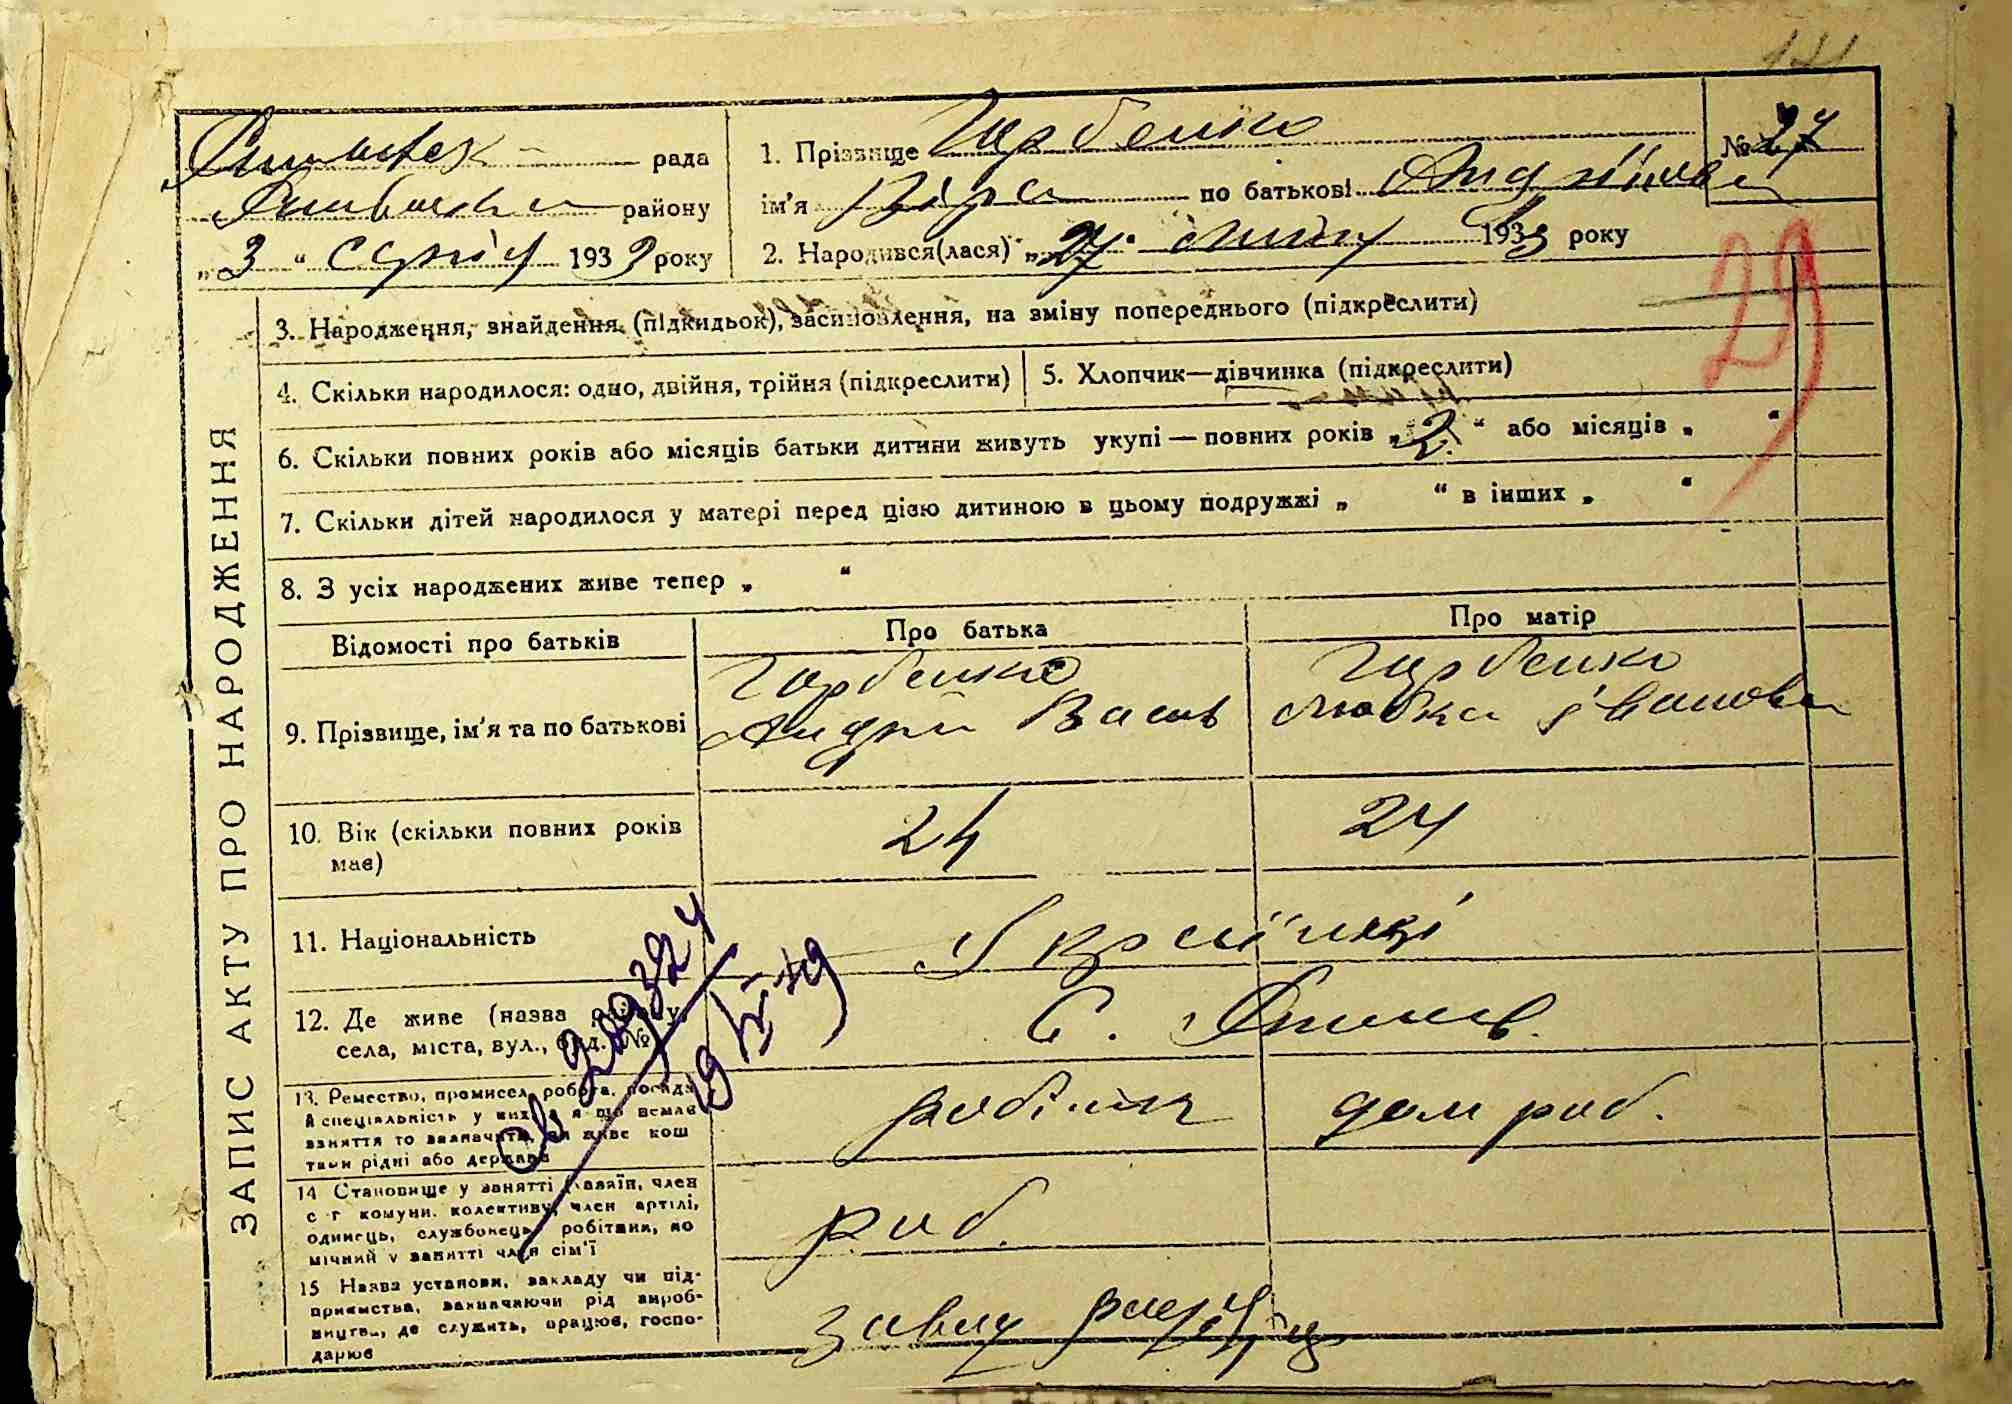 рада
району
„3" серпня 1933 року
1. Прізвище Гарбенко
ім'я Віра по батькові Андріївна
№ 27
2. Народився(лася) „27" липня 1933 року
29
ЗАПИС АКТУ ПРО НАРОДЖЕННЯ
3. Народження, знайдення (підкидьок), засиновлення, на зміну попереднього (підкреслити)
4. Скільки народилося: одно, двійня, трійня (підкреслити)
5. Хлопчик—дівчинка (підкреслити)
6. Скільки повних років або місяців батьки дитини живуть укупі — повних років „2" або місяців „ "
7. Скільки дітей народилося у матері перед цією дитиною в цьому подружжі „ " в інших „ "
8. З усіх народжених живе тепер „ "
Відомості про батьків
Про батька
Про матір
9. Прізвище, ім'я та по батькові
Гарбенко
Андрій Васив
Гарбенко
Любка Івановна
10. Вік (скільки повних років
має)
24
24
11. Національність
Українці
12. Де живе (назва округу,
села, міста, вул., буд. №)
С.
13. Ремество, промисел, робота, посада
й спеціяльність у них, а як що немає
заняття то зазначити, чи живе кош
тами рідні або держави
робітник
дом роб.
14 Становище у занятті (хазяїн, член
с-г комуни, колективу, член артілі,
одинець, службовець, робітник, по
мічний у занятті член сім'ї
роб.
15 Назва установи, закладу чи під-
приємства, зазначаючи рід вироб-
ництва, де служить, працює, госпо-
дарює
завод